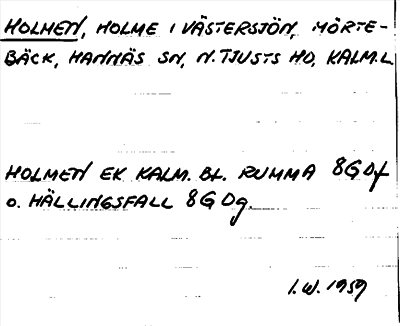 HOLMEN, HOLME I VÄSTERSJÖN, MÖRTE-
BÄCK, HANNÄS SN, N. TJUSTS HD, KALM. L
HOLMEN EK KALM. BL. RUMMA 8G Df
o. HÄLLINGSFALL 8G Dg.
I.W. 1959